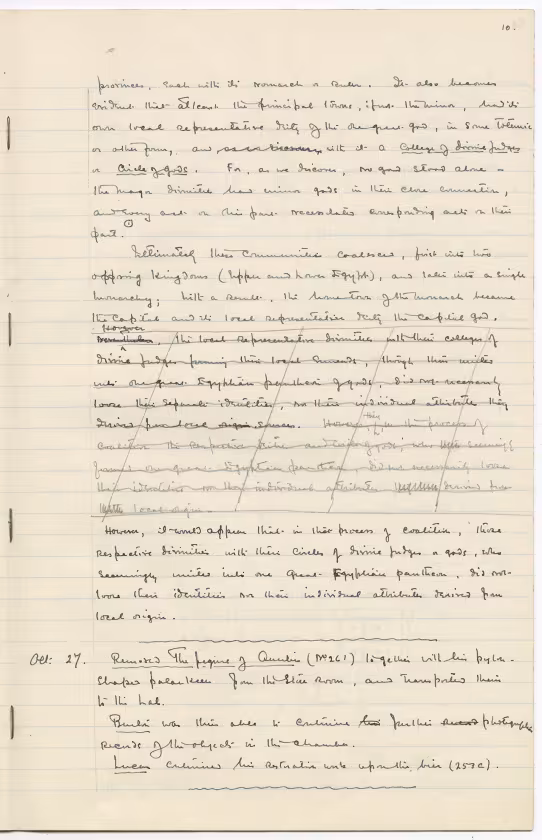 10.
provinces, each with its monarch or ruler. It also becomes
evident that at least the principal towns, if not the minor, had its
own local representative deity of the one great god, in some totemic
or other form, and with it a College of divine judges
or Circle of gods. For, as we discover, no god stood alone –
the major divinities had minor gods in their close connection,
and every act on his part necessitates corresponding acts on their
part.
Ultimately these communities coalesced, first into two
opposing kingdoms (Upper and Lower Egypt), and later into a single
monarchy; with a result, the home town of the monarch became
the capital and its local representative deity the capital god.
However
Nevertheless, the local representative divinities with their colleges of
divine judges forming their local Enneads, though then united
into one great Egyptian pantheon of gods, did not necessarily
loose their separate identities, nor their individual attributes they
derived from local origin sources. However, in the process of
they
coalition the respective deities and gods, who seemingly
formed one great Egyptian pantheon, did not necessarily loose
their identities nor their individual attributes derived from
local origin.
However, it would appear that in this process of coalition, those
respective divinities with their circles of divine judges or gods, who
seemingly united into one great Egyptian pantheon, did not
loose their identities nor their individual attributes derived from
local origin.
Oct: 27. Removed The figure of Anubis (Nº 261) together with his pylon-
shaped palanquin from the Store Room, and transported them
to the Lab.
Burton was then able to continue further photographic
records of the objects in the chamber.
Lucas continued his restoration work upon the bier (253c).